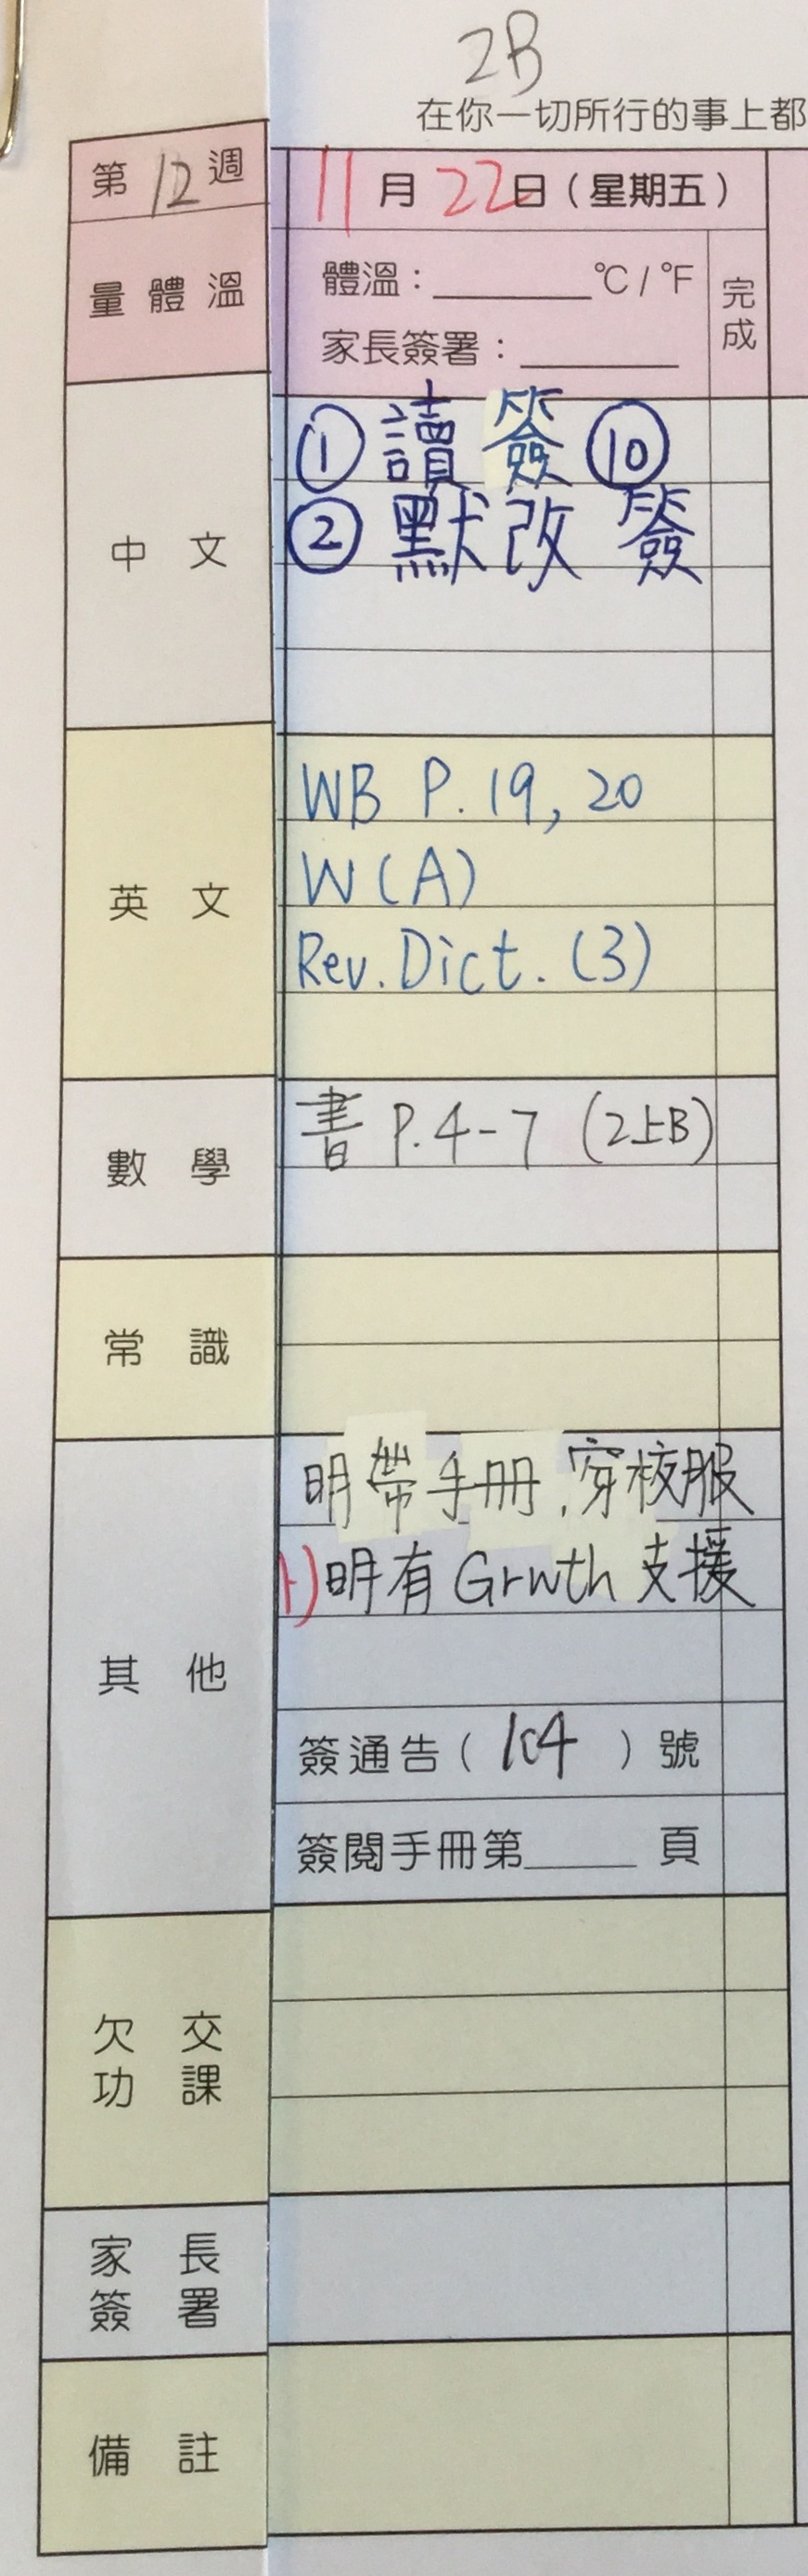 2B
在你一切所行的事上都
第12週
11月22日（星期五）
量體溫
體溫：______°C / °F
家長簽署：______
完成
中文
① 讀簽 ⑩
② 默改簽
英文
WB P.19, 20
W(A)
Rev. Dict. (3)
數學
書 P.4-7 (2上B)
常識
其他
明帶手冊,穿校服
明有 Grwth 支援
簽通告（104）號
簽閱手冊第______頁
欠交
功課
家長
簽署
備註